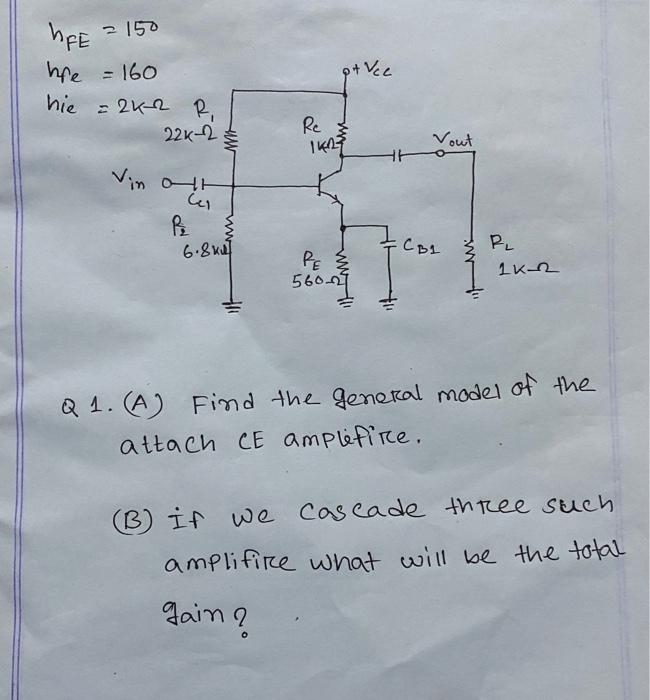 hFE = 150
hfe = 160
hie = 2K-Ω
R1
22K-Ω
+ Vcc
Rc
1KΩ
Vout
Vin
Cc1
R2
6.8KΩ
RE
560-Ω
CB1
RL
1K-Ω
Q 1. (A) Find the general model of the
attach CE amplifire.
(B) if we cascade three such
amplifire what will be the total
gain?